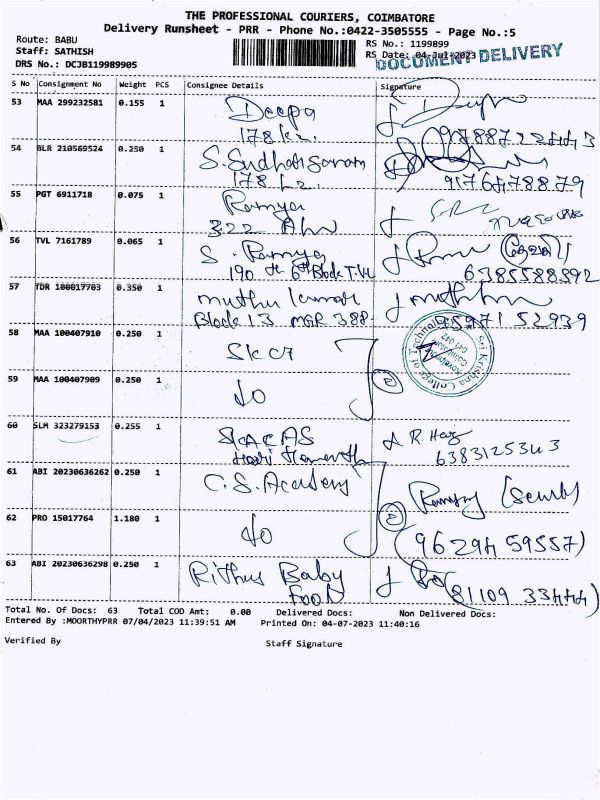 THE PROFESSIONAL COURIERS, COIMBATORE
Delivery Runsheet - PRR - Phone No.:0422-3505555 - Page No.:5
Route: BABU
RS No.: 1199899
Staff: SATHISH
RS Date: 04-Jul-2023
DOCUMENT DELIVERY
DRS No.: DCJB119989905
S No Consignment No Weight PCS Consignee Details Signature
53 MAA 299232581 0.155 1 Deepa
178
54 BLR 210569524 0.250 1
178
9176478879
55 PGT 6911718 0.075 1 Ramya
322
56 TVL 7161789 0.065 1 S. Ramya
190 6th Block
6385588392
57 TDR 180017703 0.350 1 muthu kumar
Block 13 MGR 388
58 MAA 100407910 0.250 1 SKCT
Sri Krishna College of Technology
59 MAA 100407909 0.250 1 do
60 SLM 323279153 0.255 1 SKACAS
Hari
6383125343
61 ABI 20230636262 0.250 1 C.S. Academy
62 PRO 15017764 1.180 1 do
(96294 59557)
63 ABI 20230636298 0.250 1 Rithus Baby
Food
(81109 33444)
Total No. Of Docs: 63 Total COD Amt: 0.00 Delivered Docs: Non Delivered Docs:
Entered By :MOORTHYPRR 07/04/2023 11:39:51 AM Printed On: 04-07-2023 11:40:16
Verified By Staff Signature